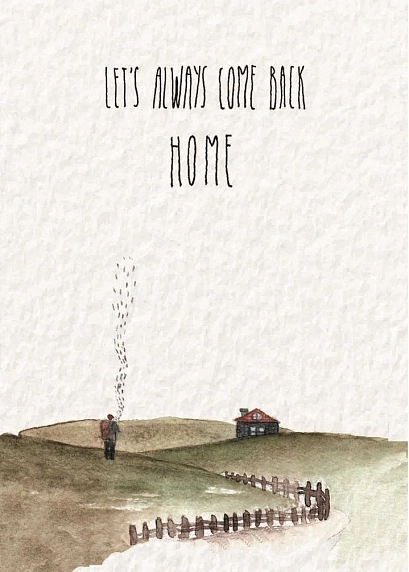 LET'S ALWAYS COME BACK
HOME